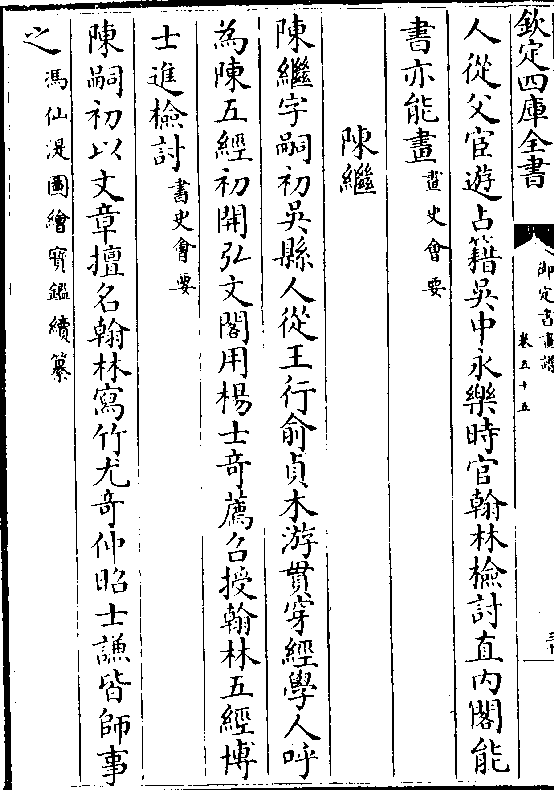 欽定四庫全書
御定書畫譜
卷五十五
人從父宦遊占籍吳中永樂時官翰林檢討直内閣能
書亦能畫畫史會要
陳繼
陳繼字嗣初吳縣人從王行俞貞木游貫穿經學人呼
為陳五經初開弘文閣用楊士竒薦召授翰林五經博
士進檢討書史會要
陳嗣初以文章擅名翰林寫竹尤竒仲昭士謙皆師事
之馮仙湜圖繪寳鑑續纂